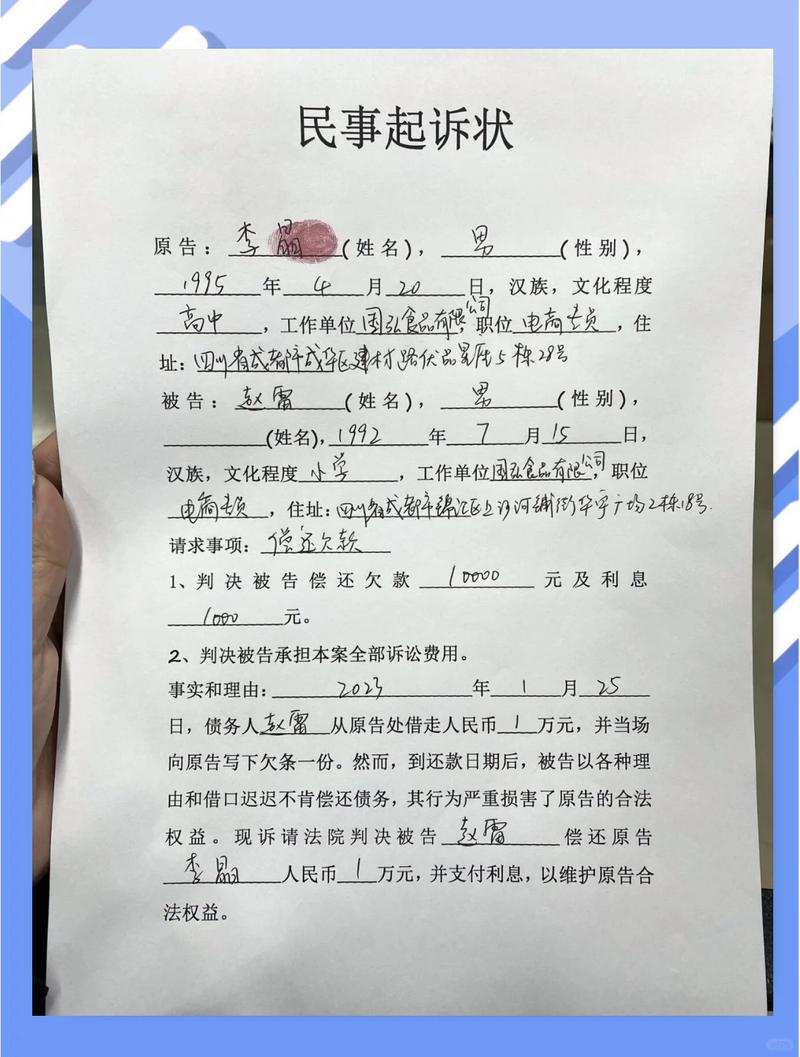 民事起诉状
原告：李晶(姓名)，男(性别)，
1995年4月20日，汉族，文化程度
高中，工作单位国弘食品有限公司，职位电商专员，住
址：四川省成都市成华区建材路优品星座5栋28号
被告：赵雷(姓名)，男(性别)，
(姓名)，1992年7月15日，
汉族，文化程度小学，工作单位国弘食品有限公司，职位
电商专员，住址：四川省成都市锦江区上沙河铺街华宇广场2栋18号.
请求事项：偿还欠款
1、判决被告偿还欠款10000元及利息
1000元。
2、判决被告承担本案全部诉讼费用。
事实和理由：2023年1月25
日，债务人赵雷从原告处借走人民币1万元，并当场
向原告写下欠条一份。然而，到还款日期后，被告以各种理
由和借口迟迟不肯偿还债务，其行为严重损害了原告的合法
权益。现诉请法院判决被告赵雷偿还原告
李晶人民币1万元，并支付利息，以维护原告合
法权益。